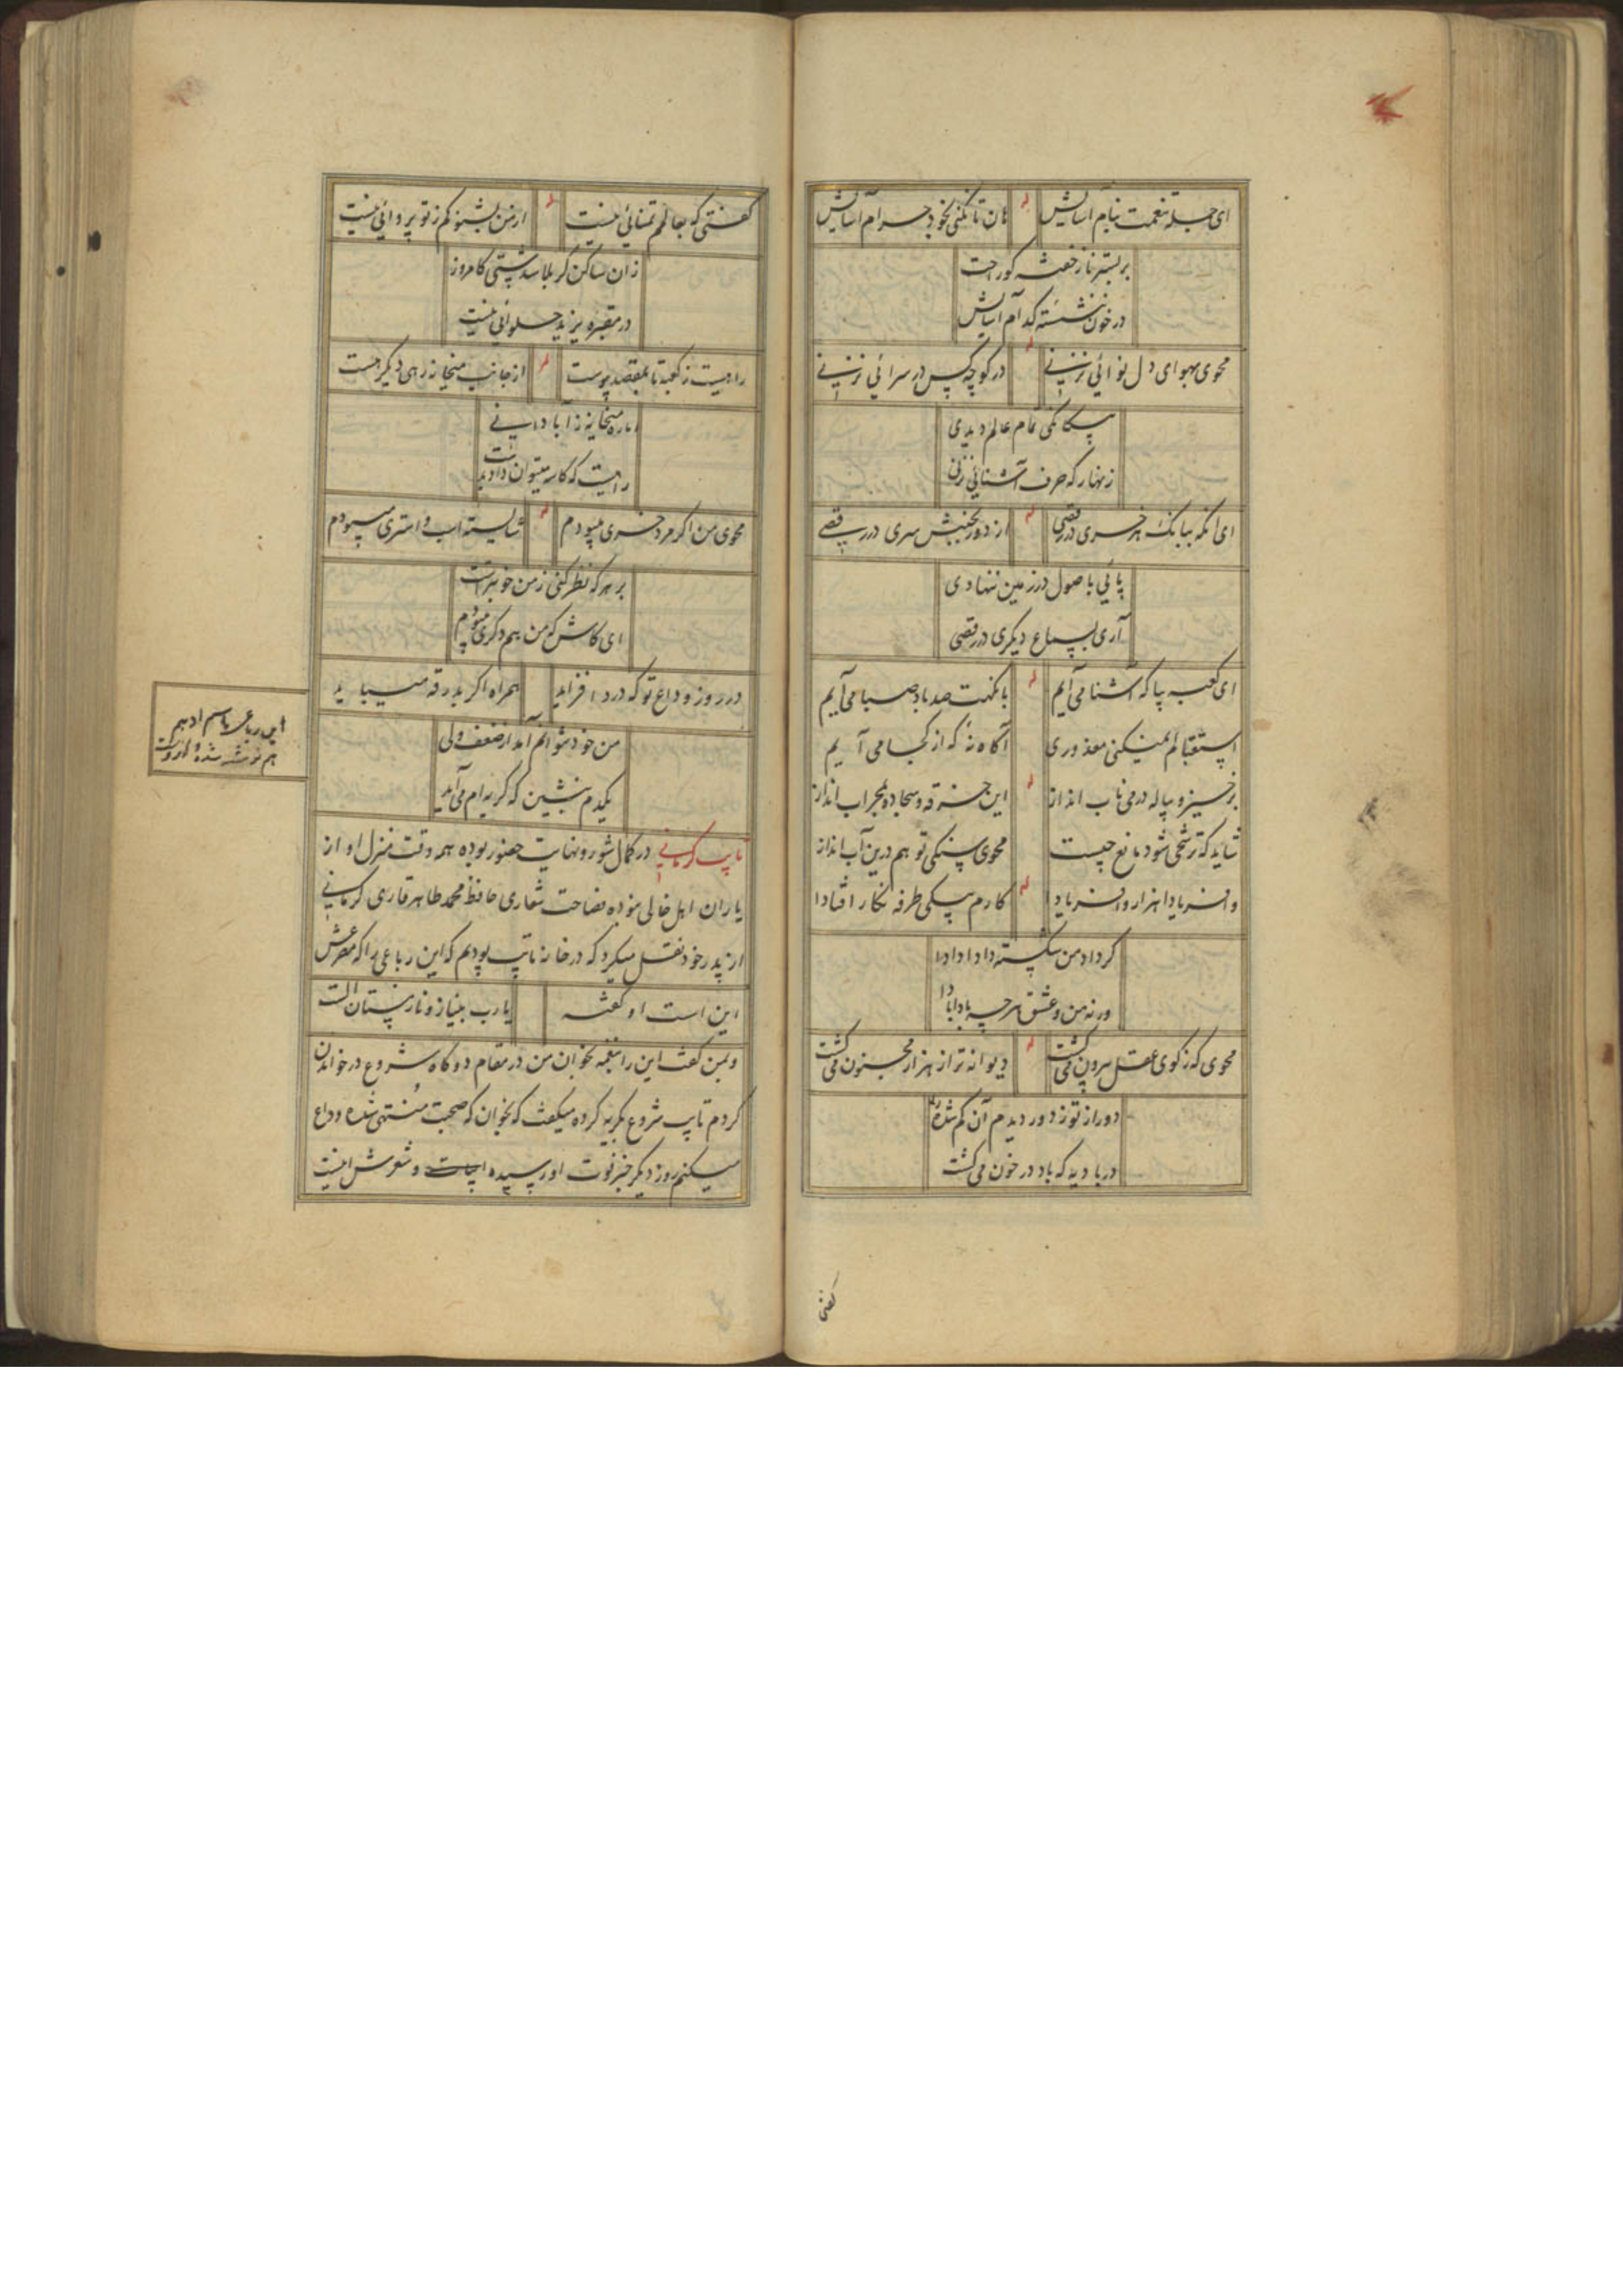 ای جمله تنعمت بنام آسایش
له
هان تا نکنی بخود حرام آسایش
بر بستر ناز خفته کو راحت
در خون ننشسته کدام آسایش
محوی بهوای دل نوائی نزنی
له
در کوچه کس در سرائی نزنی
بیگانگی تمام عالم دیدی
زنهار که حرف آشنائی نزنی
ای آنکه ببانگ هر خری در رقصی
له
از دور بجنبش سری در رقصی
پائی باصول در زمین ننهادی
آری بسماع دیگری در رقصی
ای کعبه بیا که آشنا می آیم
له
با نکهت صد باد صبا می آیم
استقبالم نمیکنی معذوری
آگاه نه که از کجا می آیم
برخیز و پیاله در می ناب انداز
له
این خرقه و سجاده بمحراب انداز
شاید که ترشحی شود مانع چیست
محوی سنگی تو هم درین آب انداز
فریادا هزار و فریادا
له
کارم بیکی طرفه نگار افتادا
گر داد من شکسته دادا دادا
ورنه من و عشق هر چه بادا بادا
محوی که ز کوی عقل بیرون می گشت
له
دیوانه تر از هزار مجنون می گشت
دور از تو ز دور دیدم آن گم شده را
در بادیه که باد در خون می گشت
گفتی
گفتی که بعالم تمنائی نیست
له
از من بشنو کم ز تو پروائی نیست
زان ساکن کربلا شدستی کامروز
در مقبره یزید حلوائی نیست
راهیست ز کعبه تا بمقصد پیوست
له
از جانب میخانه رهی دیگر هست
اما ره میخانه ز آبادانی
راهیست که کاسه میتوان داد بدست
محوی من اگر مرد خری میبودم
له
شایسته اسب و استری میبودم
بر هر که نظر کنی ز من خوبترست
ای کاش که من هم دگری میبودم
در روز وداع تو که درد افزاید
همراه اگر بدرقه میباید
من خود نتوانم آمد از ضعف ولی
یکدم بنشین که گریه ام می آید
این رباعی باسم ادهم
هم نوشته شده و از اوست
تایب کرمانی در کمال شور و نهایت حضور بوده همه وقت منزل او از
یاران اهل خالی نبوده فصاحت شعاری حافظ محمد طاهر قاری کرمانی
از پدر خود نقل میکرد که در خانه تایب بودیم که این رباعی را که مصرعش
این است او گفته
یارب بنیاز و ناز مستان الست
و بمن گفت این را بنغمه بخوان من در مقام دوگاه شروع در خواندن
کردم تایب شروع بگریه کرده میگفت که بخوان که صحبت منتهی شده وداع
میکنم روز دیگر خبر فوت او رسیده و شعرش اینست